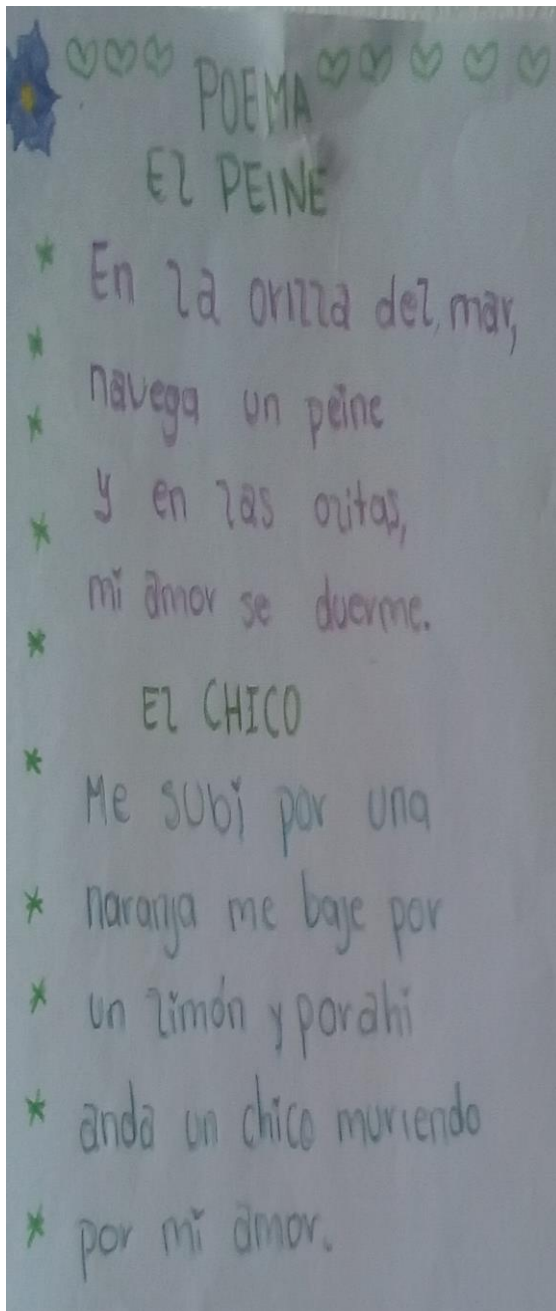 POEMA
El PEINE
En la orilla del, mar,
navega un peine
y en las olitas,
mi amor se duerme.
El CHICO
Me subi por una
naranja me baje por
un limón y porahi
anda un chico muriendo
por mi amor.